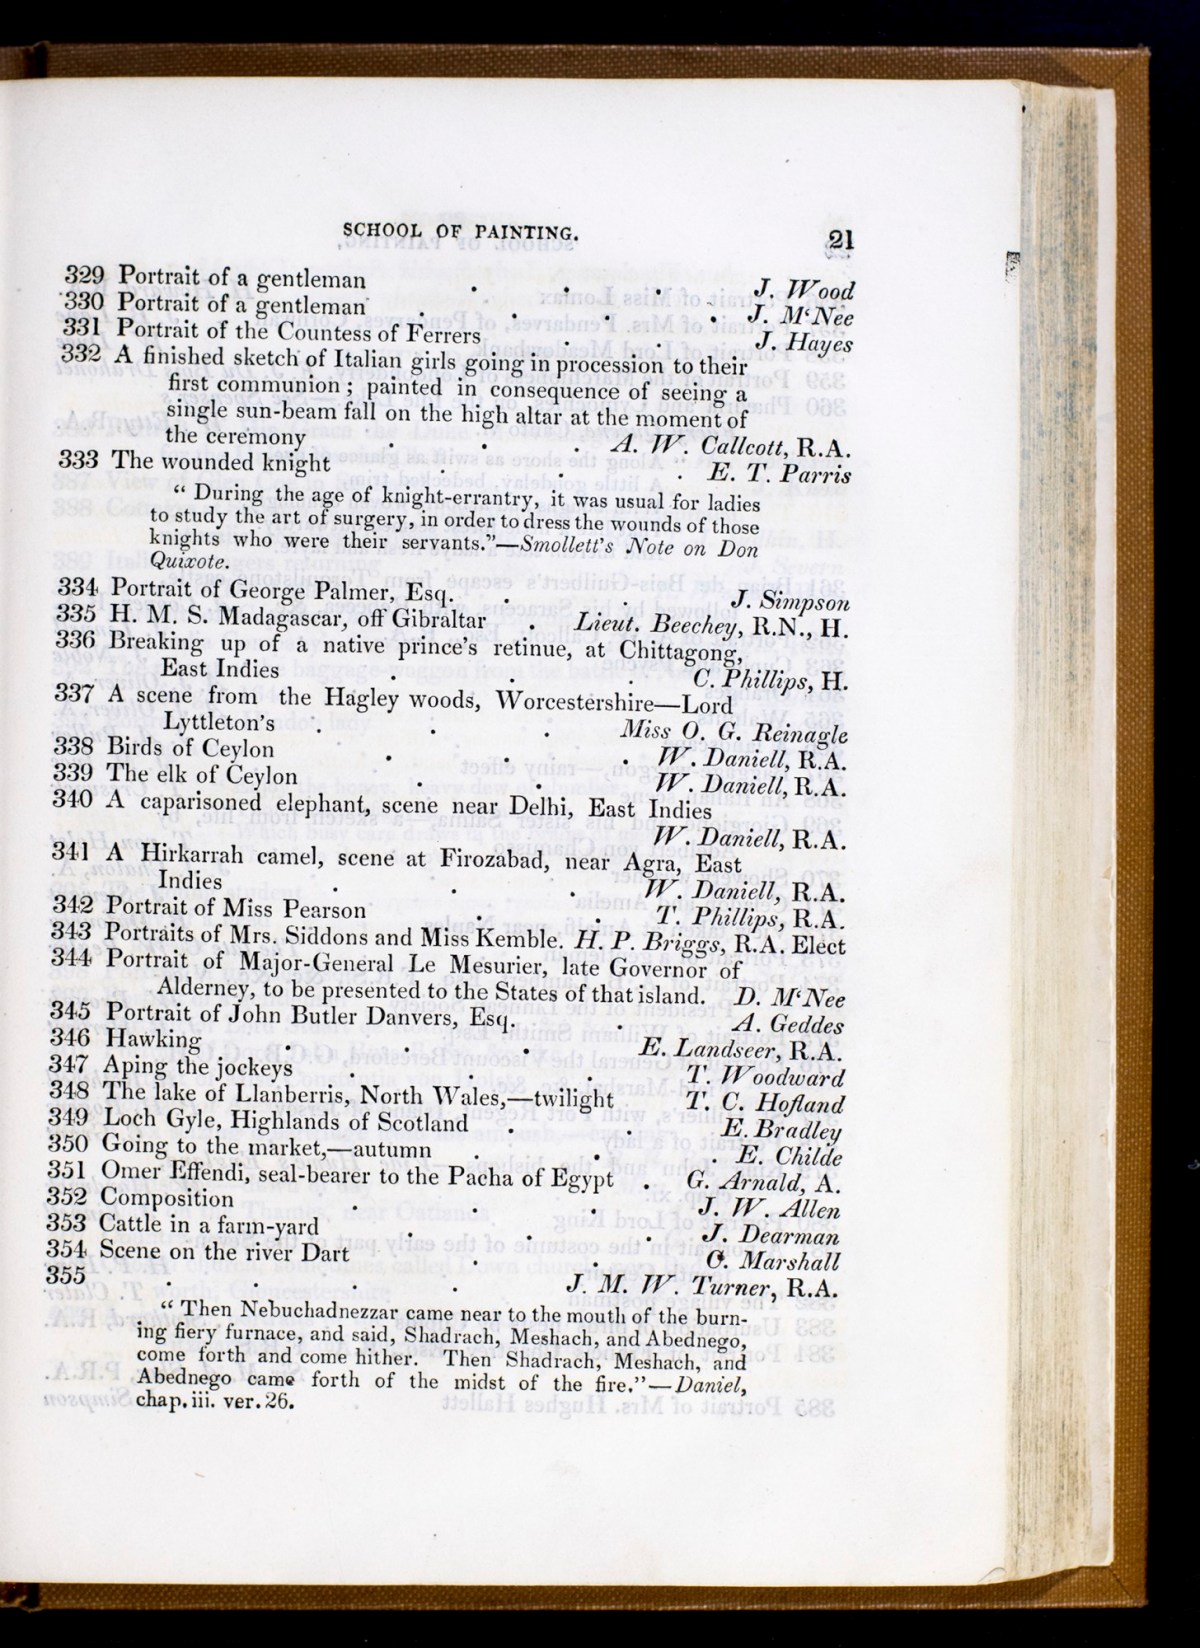 SCHOOL OF PAINTING. 21
329 Portrait of a gentleman . . . J. Wood
330 Portrait of a gentleman . . . . J. M‘Nee
331 Portrait of the Countess of Ferrers . . J. Hayes
332 A finished sketch of Italian girls going in procession to their
first communion; painted in consequence of seeing a
single sun-beam fall on the high altar at the moment of
the ceremony . . . A. W. Callcott, R.A.
333 The wounded knight . . . E. T. Parris
“ During the age of knight-errantry, it was usual for ladies
to study the art of surgery, in order to dress the wounds of those
knights who were their servants.”—Smollett's Note on Don
Quixote.
334 Portrait of George Palmer, Esq. . . J. Simpson
335 H. M. S. Madagascar, off Gibraltar . Lieut. Beechey, R.N., H.
336 Breaking up of a native prince's retinue, at Chittagong,
East Indies . . . C. Phillips, H.
337 A scene from the Hagley woods, Worcestershire—Lord
Lyttleton's . . . Miss O. G. Reinagle
338 Birds of Ceylon . . . W. Daniell, R.A.
339 The elk of Ceylon . . . W. Daniell, R.A.
340 A caparisoned elephant, scene near Delhi, East Indies
W. Daniell, R.A.
341 A Hirkarrah camel, scene at Firozabad, near Agra, East
Indies . . . W. Daniell, R.A.
342 Portrait of Miss Pearson . . T. Phillips, R.A.
343 Portraits of Mrs. Siddons and Miss Kemble. H. P. Briggs, R.A. Elect
344 Portrait of Major-General Le Mesurier, late Governor of
Alderney, to be presented to the States of that island. D. M‘Nee
345 Portrait of John Butler Danvers, Esq. . A. Geddes
346 Hawking . . . E. Landseer, R.A.
347 Aping the jockeys . . . T. Woodward
348 The lake of Llanberris, North Wales,—twilight T. C. Hofland
349 Loch Gyle, Highlands of Scotland . . E. Bradley
350 Going to the market,—autumn . . . E. Childe
351 Omer Effendi, seal-bearer to the Pacha of Egypt . G. Arnald, A.
352 Composition . . . J. W. Allen
353 Cattle in a farm-yard . . . J. Dearman
354 Scene on the river Dart . . C. Marshall
355 . . . . J. M. W. Turner, R.A.
“ Then Nebuchadnezzar came near to the mouth of the burn-
ing fiery furnace, and said, Shadrach, Meshach, and Abednego,
come forth and come hither. Then Shadrach, Meshach, and
Abednego came forth of the midst of the fire.”—Daniel,
chap. iii. ver. 26.